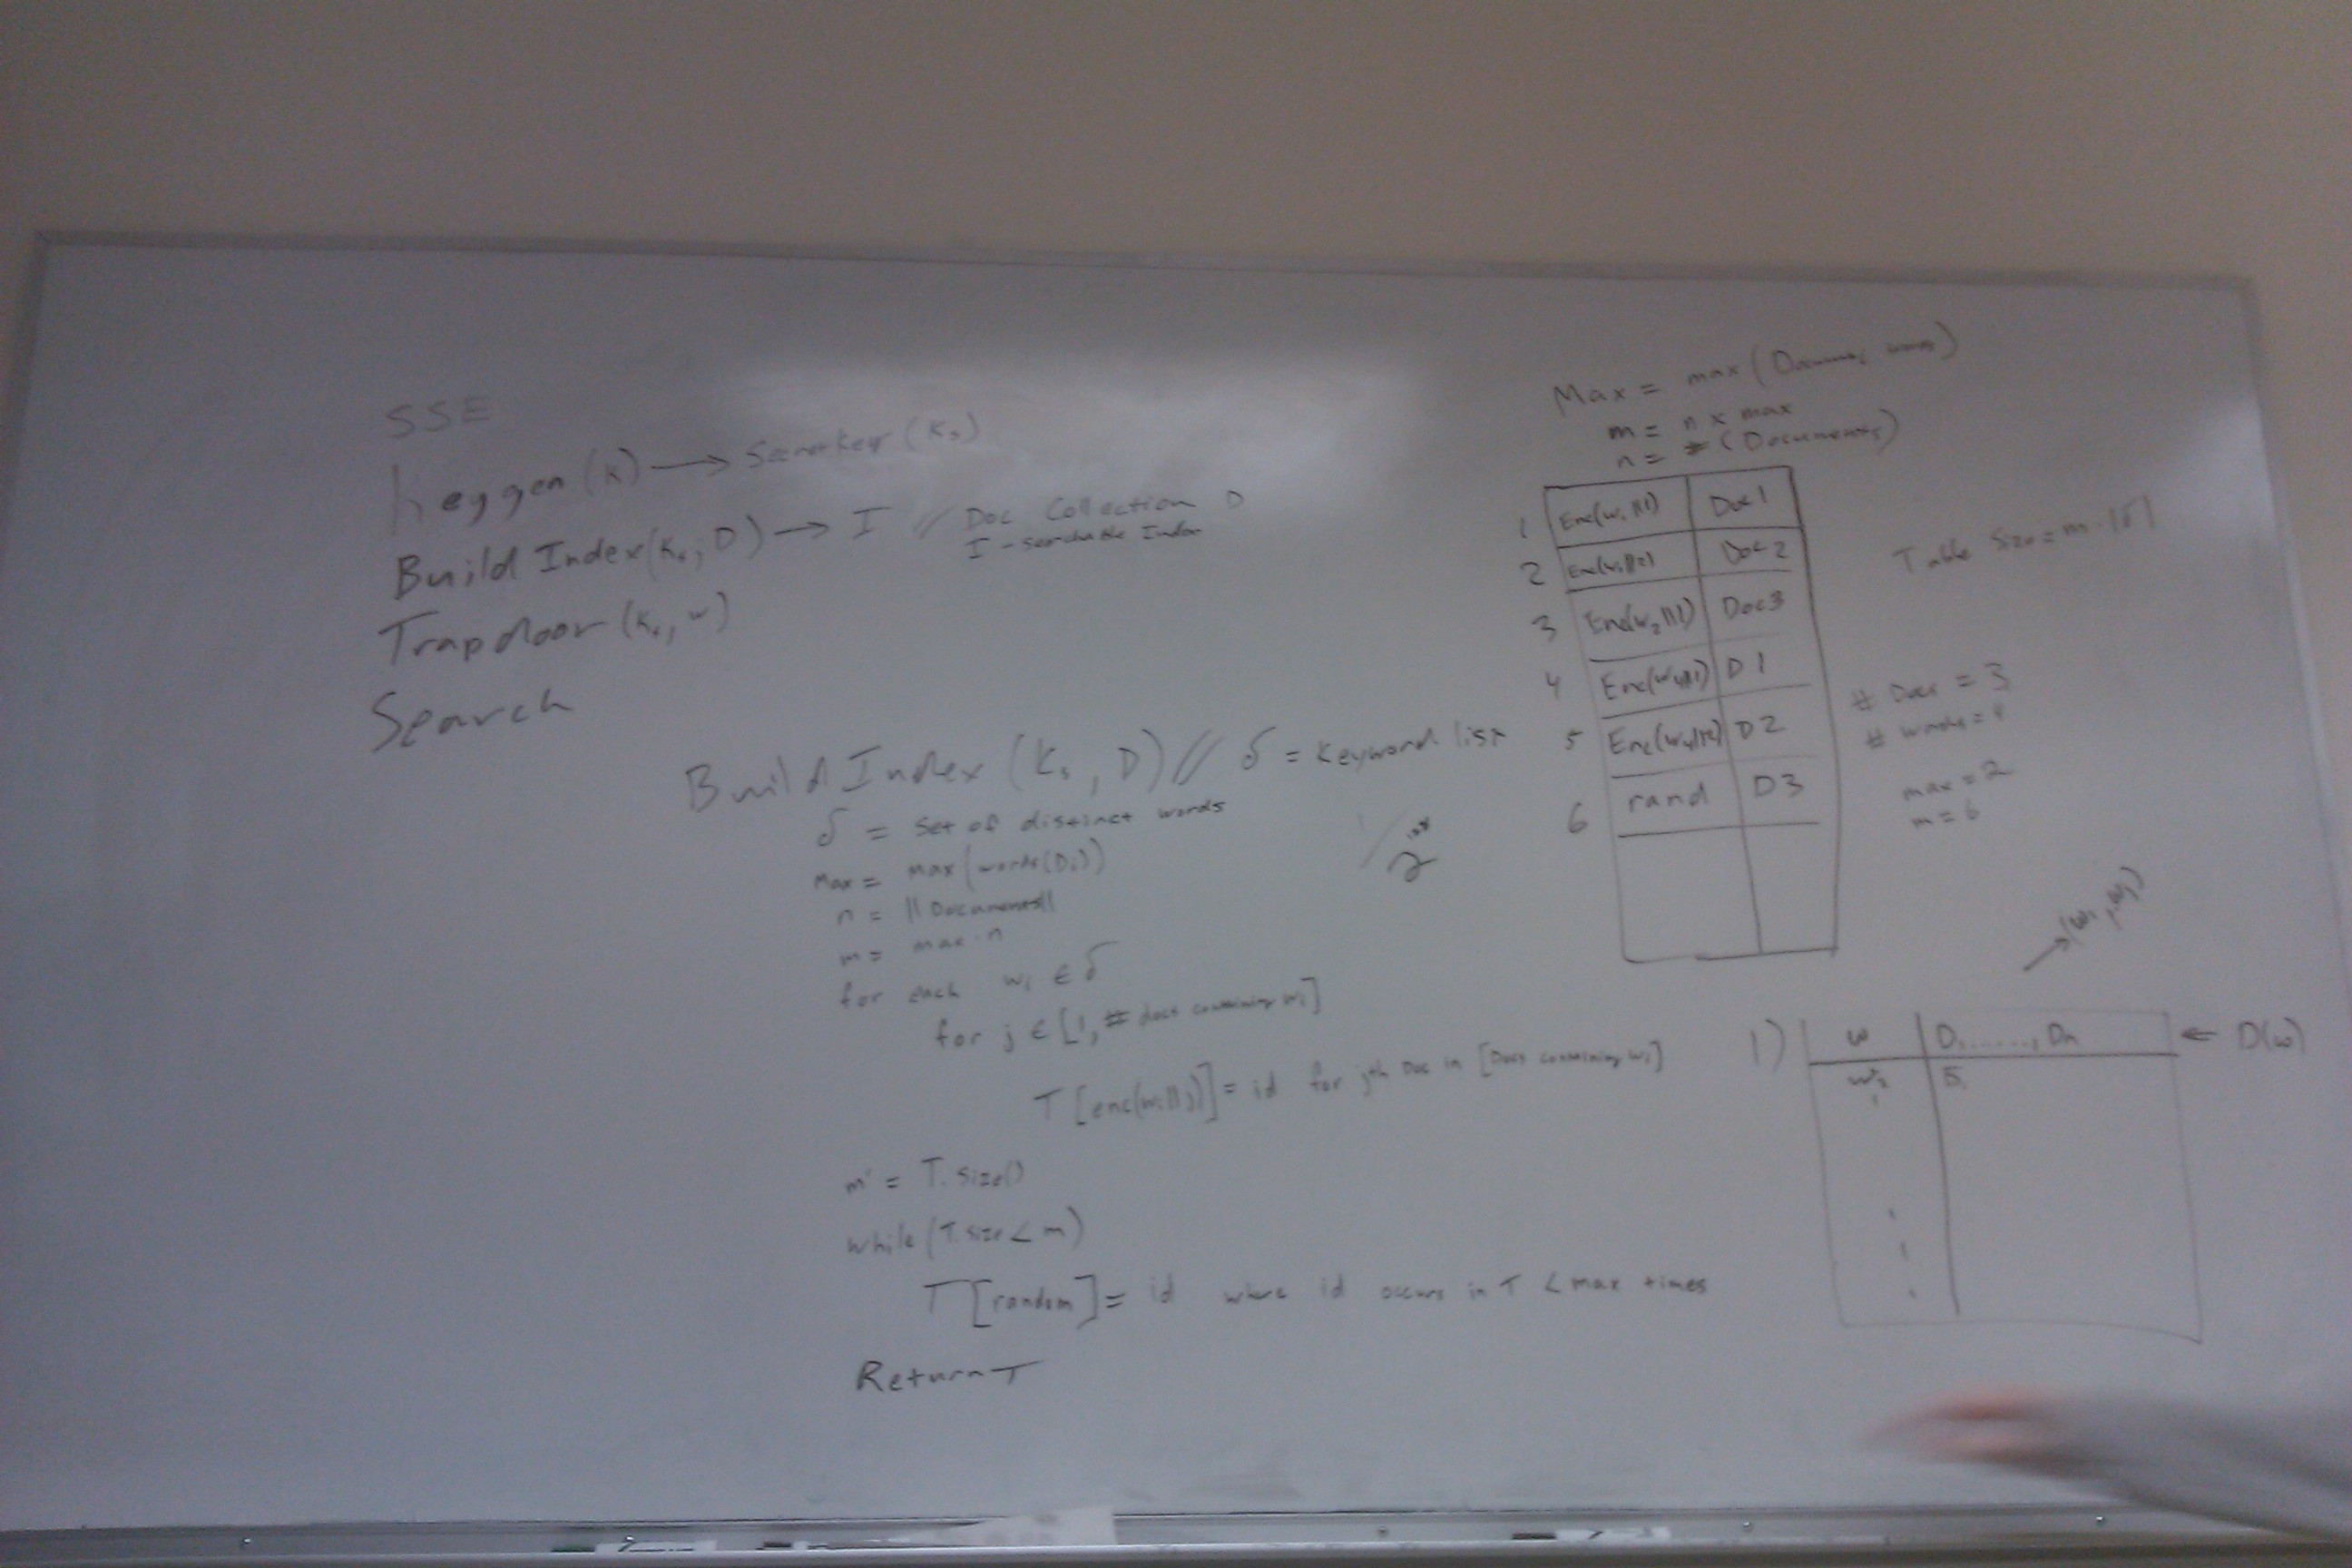 SSE
Keygen (K) → Secret key (Ks)
Build Index (Ks, D) → I // Doc Collection D
I - searchable Index
Trapdoor (Ks, w)
Search
Build Index (Ks, D) // δ = keyword list
δ = set of distinct words
Max = max (words(Di))
n = || Documents ||
m = max · n
for each wi ∈ δ
for j ∈ [1, # docs containing wi]
T [enc(wi||j)] = id for jth Doc in [Docs containing wi]
m' = T. size()
while (T.size < m)
T [random] = id where id occurs in T < max times
Return T
Max = max (
m = n x max
n = # (Documents)
1 Enc(w1||1) Doc 1
2 Enc(w1||2) Doc 2
3 Enc(w2||1) Doc 3
4 Enc(w4||1) D 1
5 Enc(w4||2) D 2
6 rand D 3
Table Size = m · |δ|
# Docs = 3
# words = 4
max = 2
m = 6
1) w D1......, Dn ← D(w)